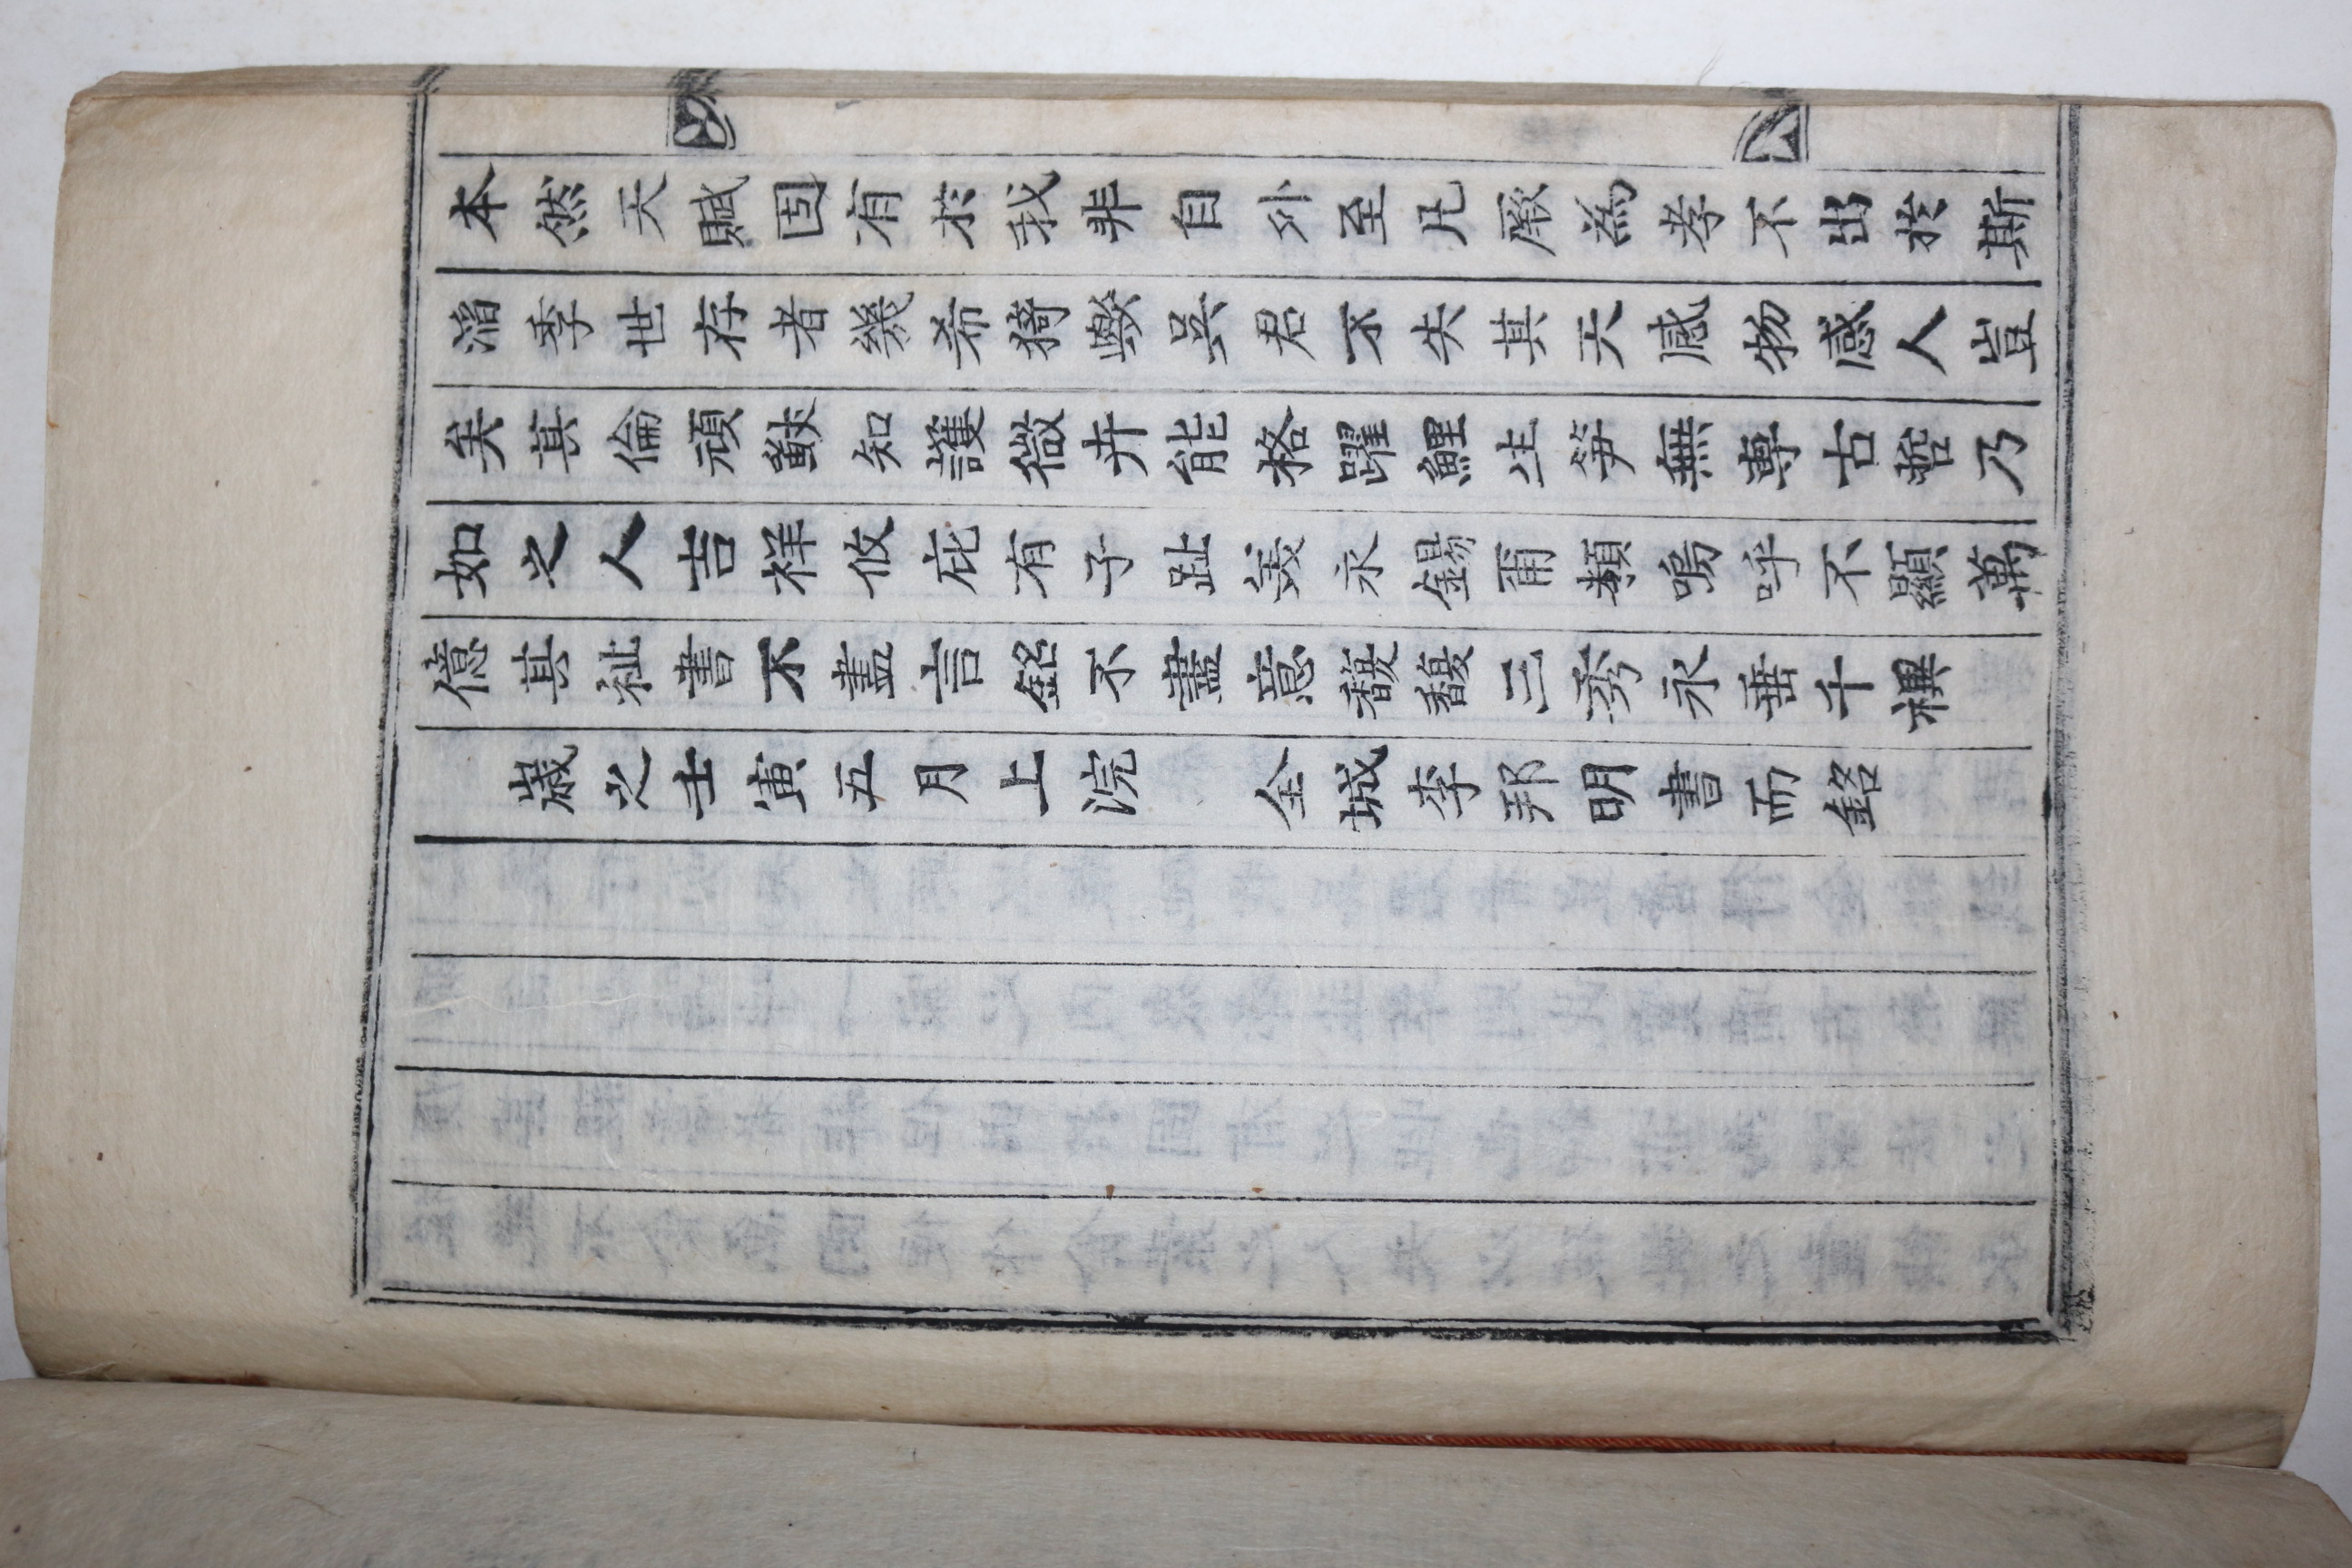 本然天賦固有於我非自外至凡厥為孝不出於斯
滔季世存者幾希猗歟吳君不失其天感物感人豈
矣其倫頑獸知護微卉能格躍鯉生笋無專古哲乃
如之人吉祥攸庇有子趾美永錫爾類嗚呼不顯萬
億其祉書不盡言銘不盡意馥馥三秀永垂千禩
歲之壬寅五月上浣 全城李邦明書而銘